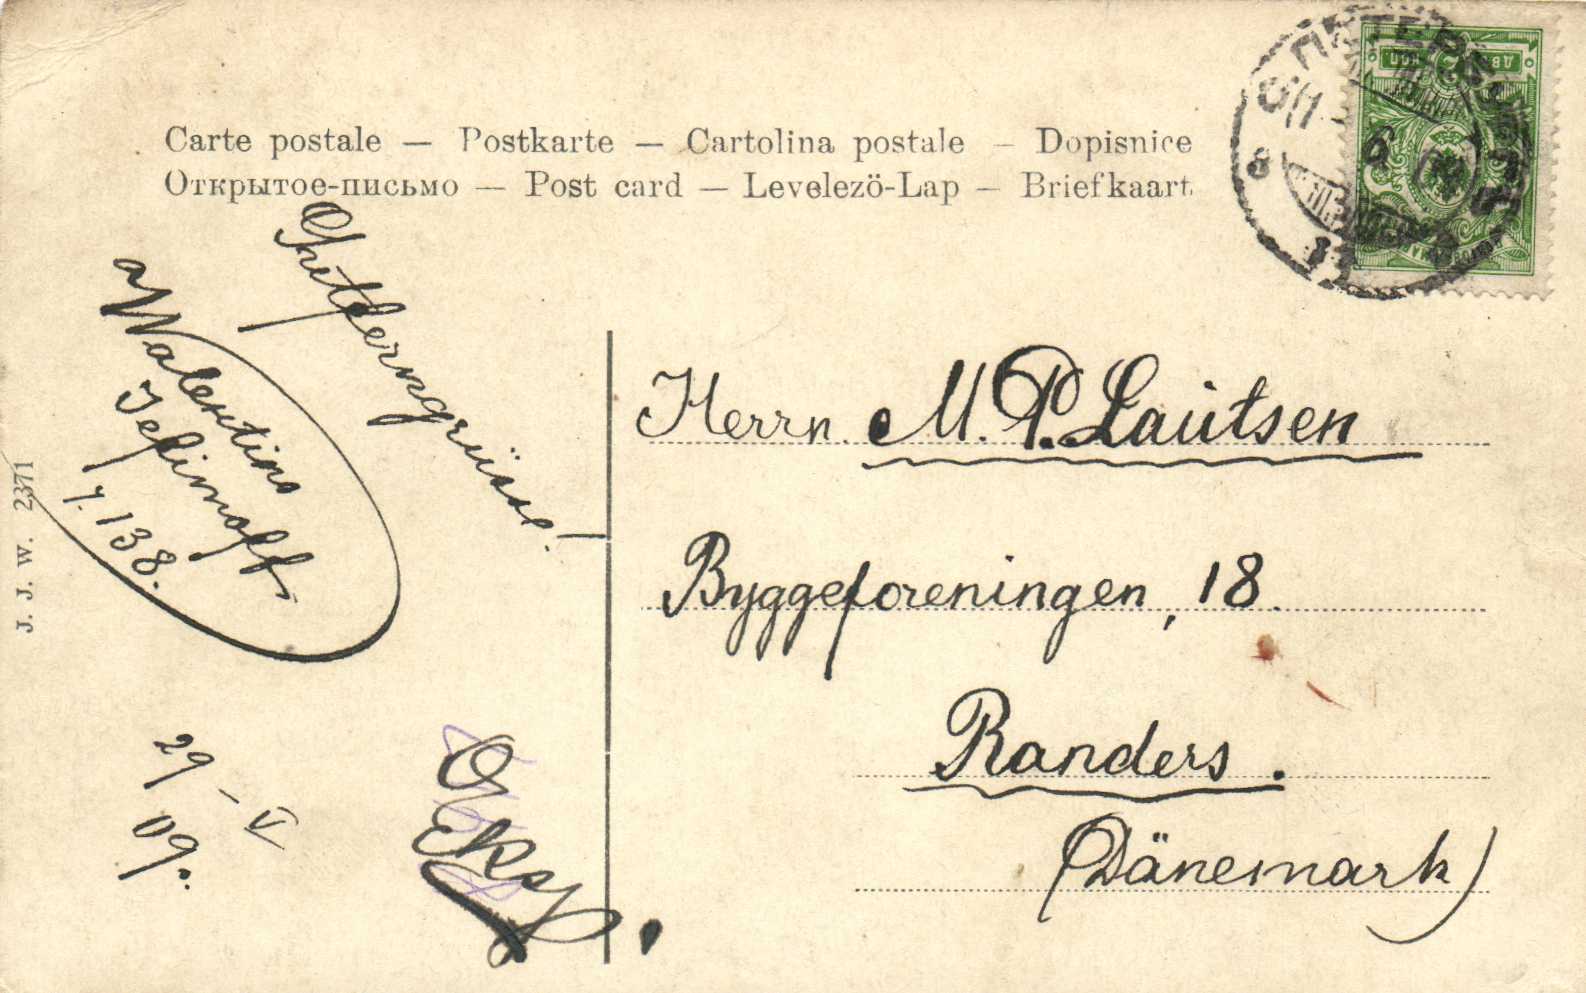 Carte postale — Postkarte — Cartolina postale — Dopisnice
Открытое-письмо — Post card — Levelezö-Lap — Briefkaart
Walentine
Jefimoff
7. 138.
29 – V
09.
J. J. W. 2371
Herrn M. P. Lauitsen
Byggeforeningen, 18.
Randers.
(Dänemark)